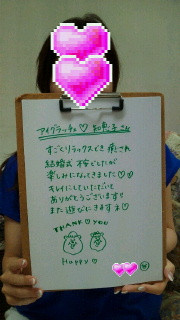 アイグラッチェ♡知恵子さん
すごくリラックスでき 癒され
結婚式 待ちどしたが
楽しみになってきました♡
キレイにしていただいて
ありがとうございます!!
また遊びにきますネ♡
THANK♡YOU
Happy♡